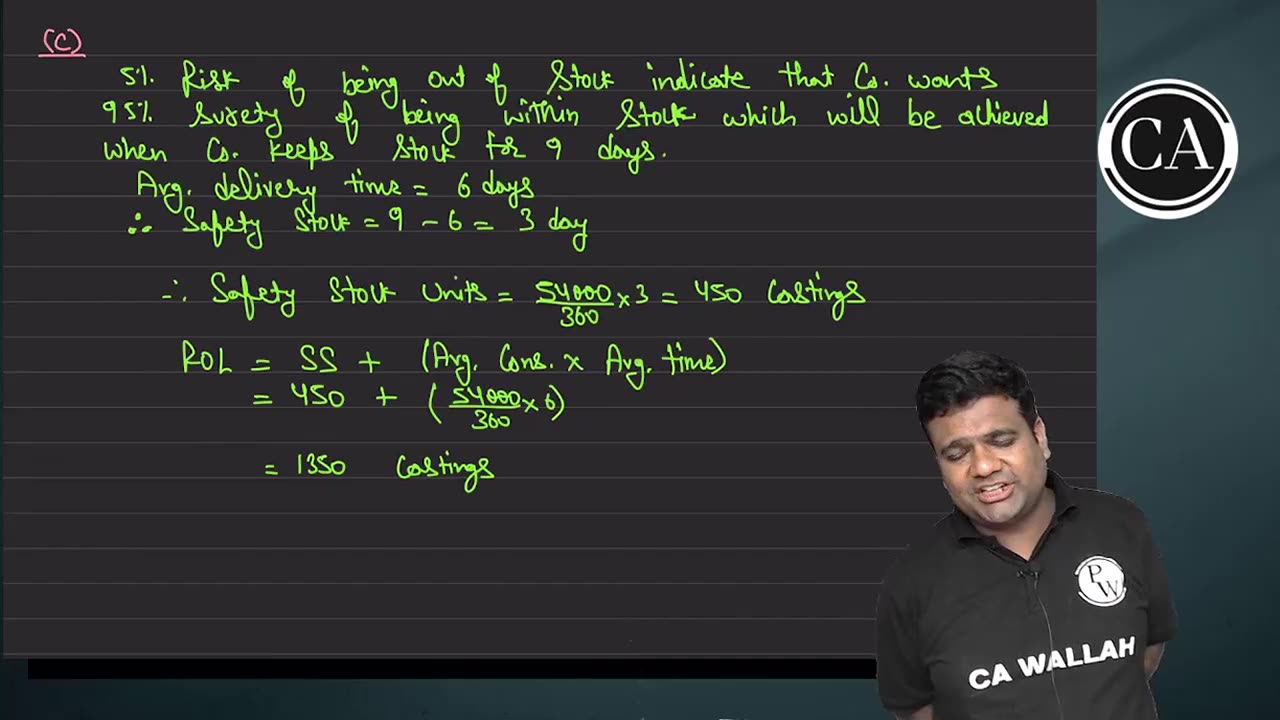 (C)
5%. Risk of being out of Stock indicate that Co. wants
95%. surety of being within Stock which will be achieved
when Co. keeps Stock for 9 days.
Avg. delivery time = 6 days
∴ Safety Stock = 9 - 6 = 3 day
∴ Safety Stock Units = 54000/360 × 3 = 450 Castings
ROL = SS + (Avg. Cons. × Avg. time)
= 450 + (54000/360 × 6)
= 1350 Castings
CA
PW
CA WALLAH